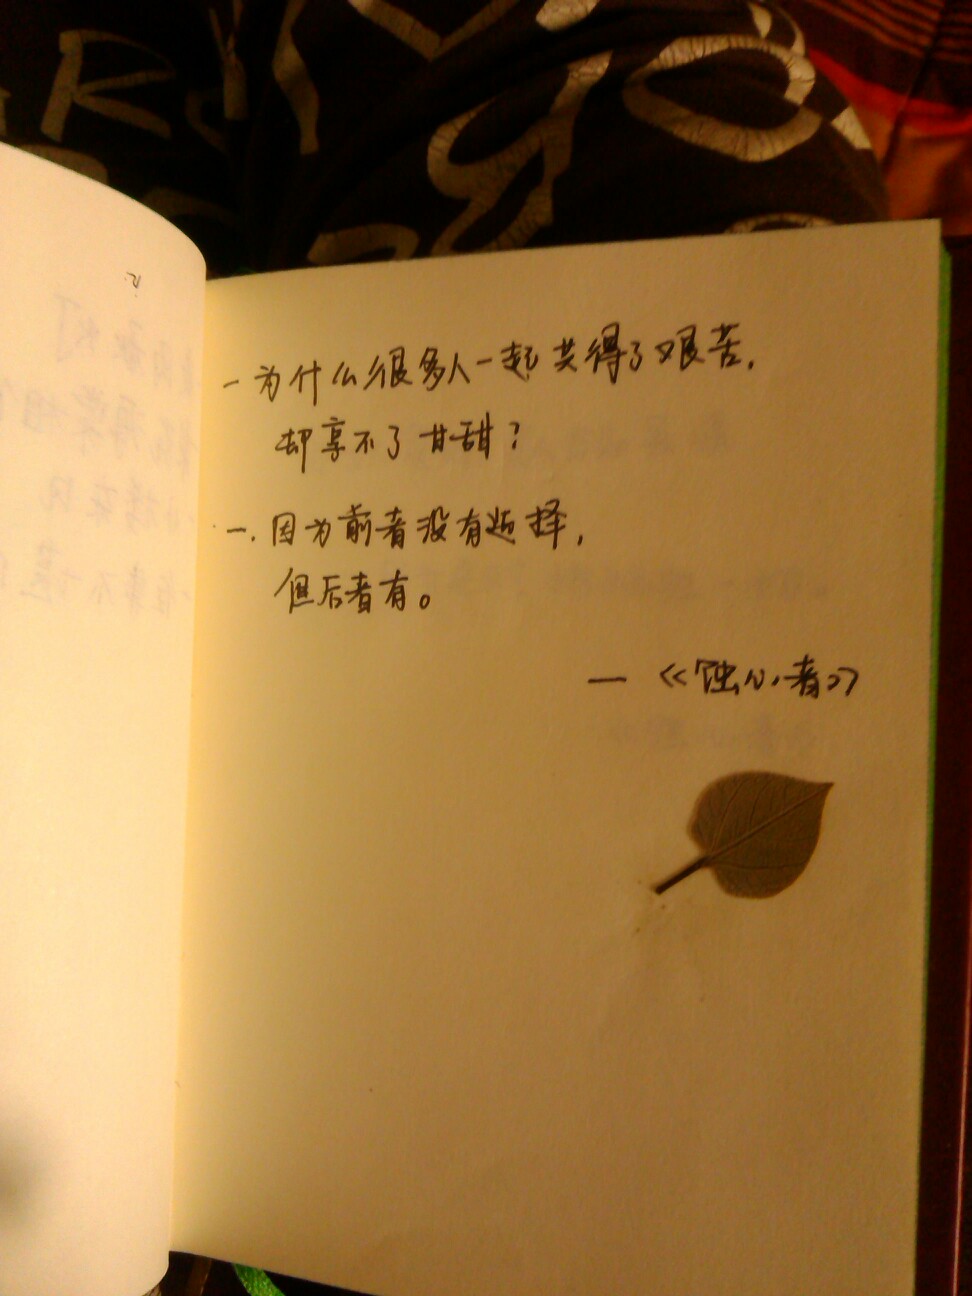 一为什么很多人一起共得了艰苦,
却享不了甘甜?
一.因为前者没有选择,
但后者有。
—《蚀心者》